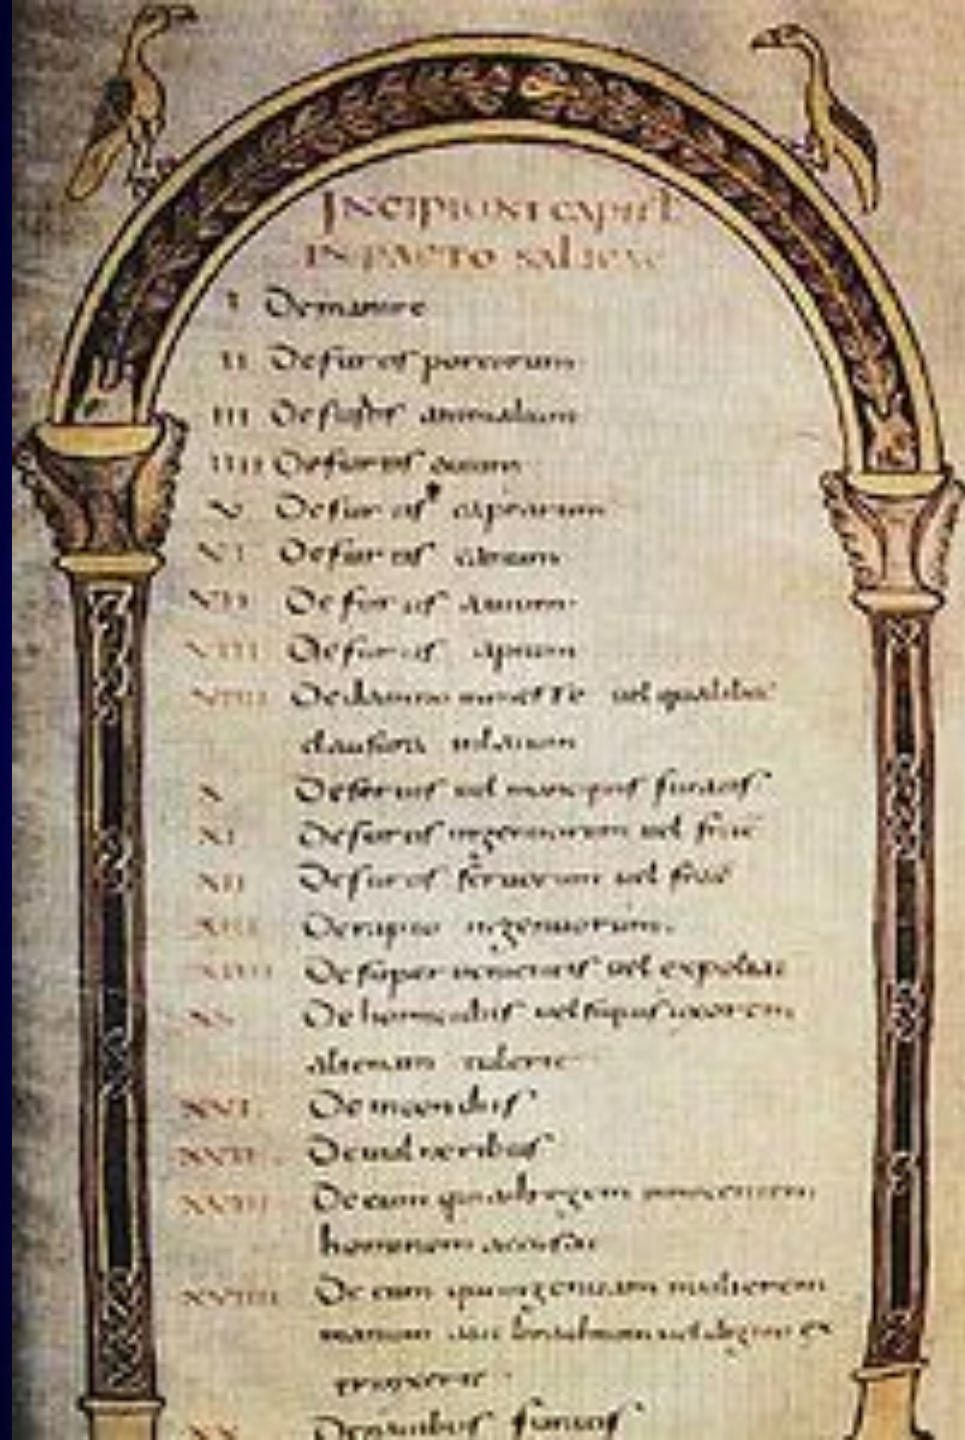 INCIPIUNT CAPITL
IN PACTO SALICAE
I De manire
II De furtis porcorum
III De furtis animalium
IIII De furtis ouium
V De furtis caprarum
VI De furtis canum
VII De furtis auium
VIII De furtis apium
VIIII De damno in messe uel qualibet
clausura
X De seruis uel mancipiis furatis
XI De furtis ingenuorum uel frac
XII De furtis seruorum uel frac
XIII De rapto ingenuorum
XIIII De superuenientis uel expoliat
XV De homicidiis uel siquis uxorem
alienam tulerit
XVI De incendiis
XVII De uulneribus
XVIII De eum qui ad regem innocentem
hominem accusat
XVIIII De eum qui ingenuam mulierem
manum aut brachium uel digitum ex
trinxerit
XX De nauibus furatis